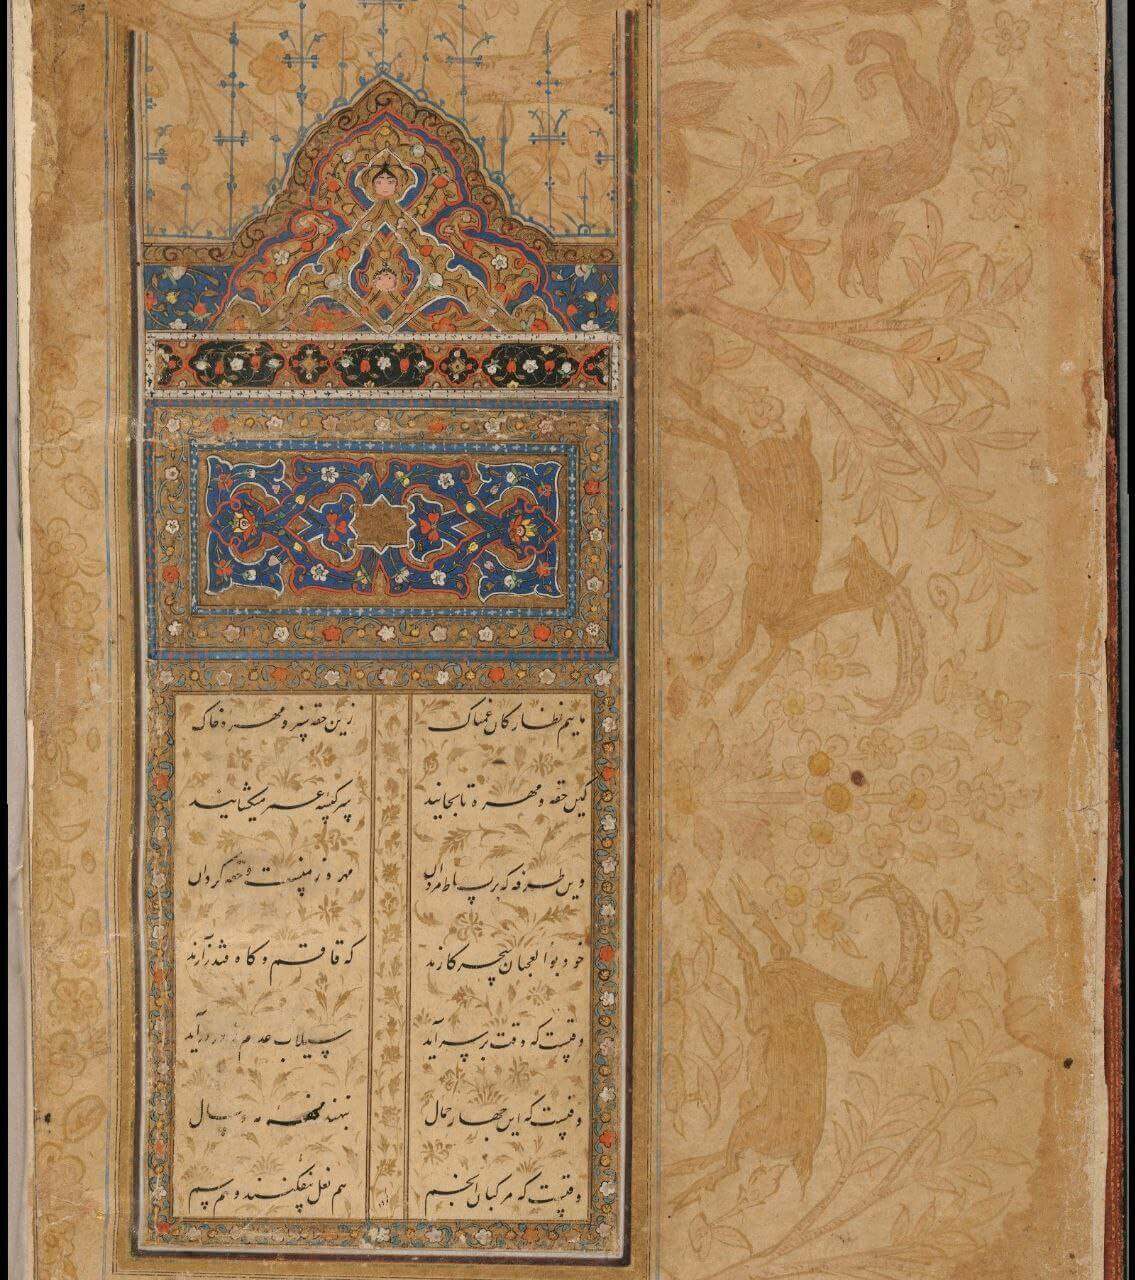 ماییم نظارکان غمناک زین حقه سبز و مهره خاک
کین حقه و مهره تا بجایند پی کیسه عمر میکشایند
وین طرفه که بر بساط مردان مهره زمیست و حقه کردان
خود بوالعجبان سحر کارند که قاقم و کاه قندز آرند
وقتست که وقت بر سر آید سیلاب عدم در آید
وقتست که این چهار حمال بنهند محفه مه و سال
وقتست که مرکبان انجم هم نعل بیفکنند و هم سم